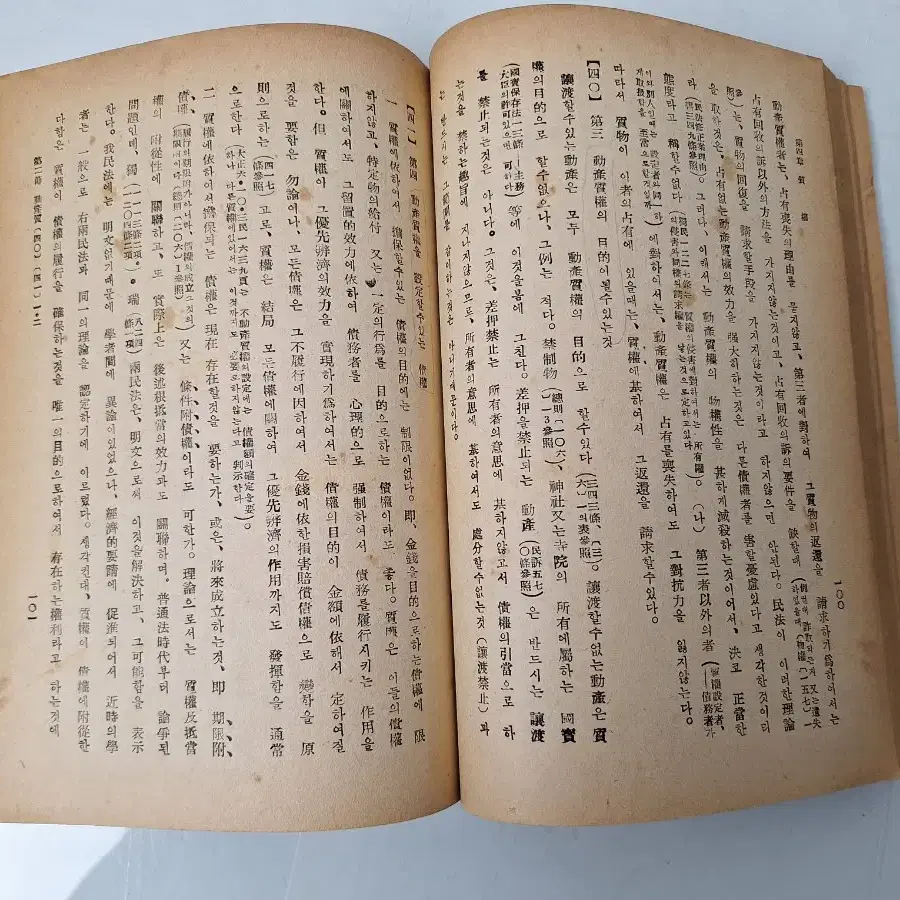 第四章 質權
一〇〇
動產質權者는、占有喪失의 理由를 묻지않고、第三者에 對하여 그質物의返還을 請求하기爲하여서는
占有回收의訴以外의 方法을 가지지않는것이고、占有回收의 訴의 要件을 缺할때
는、質物의回復을 請求할手段을 가지지않는것이라고 하지않으면 안된다。民法이 이러한理論
을 取하것은、占有없는動產質權의效力을 强大히하는것은 다른債權者를 害할憂慮있다고 생각한것이디
라(民法修正案理由)。그러나、이래서는 動產質權의 物權性을 甚하게 減殺하는것이어서、決코 正當한
態度라고 稱할수없다
(나) 第三者以外의者
에 對하여서는、動產質權은 占有를喪失하여도 그對抗力을 잃지않는다。
따라서 質物이 이者의占有에 있을때는、質權에基하여서 그返還을 請求할수있다。
【四〇】第三 動產質權의 目的이될수있는것
讓渡할수있는動產은 모두 動產質權의 目的으로 할수있다(三四三條、【三】。讓渡할수없는動產은 質
權의目的으로 할수없으나、그例는 적다。禁制物(總則〔一〇六〕)、神社又는寺院의 所有에屬하는 國寶
(國寶保存法一三條——主務大臣의許可있으면 可하다)等에 이것을봄에 그친다。差押을禁止되는 動產(民訴五七〇條參照)은 반드시는 讓渡
를 禁止되는것은 아니다。그것은、差押禁止는 所有者의意思에 基하지않고서 債權의引當으로 하
는것을 禁止하는趣旨에 지나지않으므로、所有者의意思에 基하여서도 處分할수없는것(讓渡禁止)과
는 반드시는 範圍를 같이하는것은 아니기때문이다。
【四一】第四 動產質權을 設定할수있는 債權
一 質權에依하여서 擔保할수있는 債權의目的에는 制限이없다。即、金錢을目的으로하는債權에 限
하지않고、特定物의給付 又는 一定의行爲를 目的으로하는 債權이라도 좋다。質權은 이들의債權
에關하여서도 그留置的效力에依하여 債務者를 心理的으로 强制하여서 債務를履行시키는 作用을
한다。但 質權이 그優先辨濟의效力을 實現하기爲하여서는 債權의目的이 金額에依해서 定하여질
것을 要함은 勿論이나、모든債權은 그不履行에因하여서 金錢에依한損害賠償債權으로 變함을 原
則으로하는(四一七條參照)고로、質權은 結局 모든債權에關하여 그優先辨濟의作用까지도 發揮함을 通常
으로한다
二 質權에依하여서擔保되는 債權은 現在 存在할것을 要하는가、或은、將來成立하는것、即 期限附
債權 又는 條件附債權이라도 可한가。理論으로는 質權反抵當
權의 附從性에 關聯하고、또 實際上은 後述根抵當의效力과도 關聯하며、普通法時代부터 論爭된
問題인데、獨(一一一三條二項・一二〇四條二項)・瑞(八二四條一項)兩民法은、明文으로써 이것을解決하고、그可能함을 表示
한다。我民法에는 明文없기때문에 學者間에 異論이있었으나、經濟的要請에 促進되어서 近時의學
者는 一般으로 右兩民法과 同一의理論을 認定하기에 이르렀다。생각컨대、質權이 債權에附從한
다함은 質權이 債權의履行을 確保하는것을 唯一의目的으로하여서 存在하는權利라고 하는것에
第二節 動產質〔四〇〕〔四一〕・二
一〇一